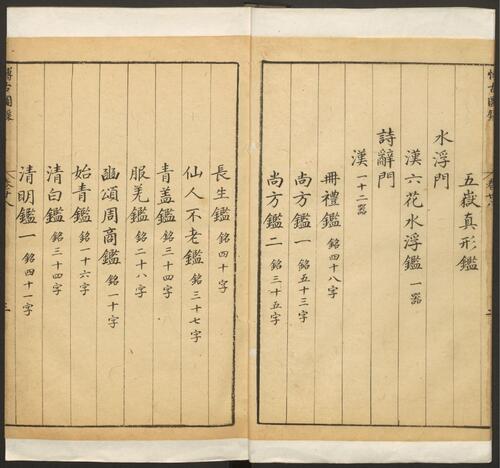 五嶽真形鑑
水浮門
漢六花水浮鑑 一器
詩辭門
漢 一十二器
冊禮鑑 銘四十八字
尚方鑑一 銘五十三字
尚方鑑二 銘三十五字
長生鑑 銘四十字
仙人不老鑑 銘三十七字
青蓋鑑 銘三十四字
服羌鑑 銘二十八字
幽頌周商鑑 銘一十字
始青鑑 銘一十六字
清白鑑 銘三十四字
清明鑑一 銘四十一字
博古圖錄